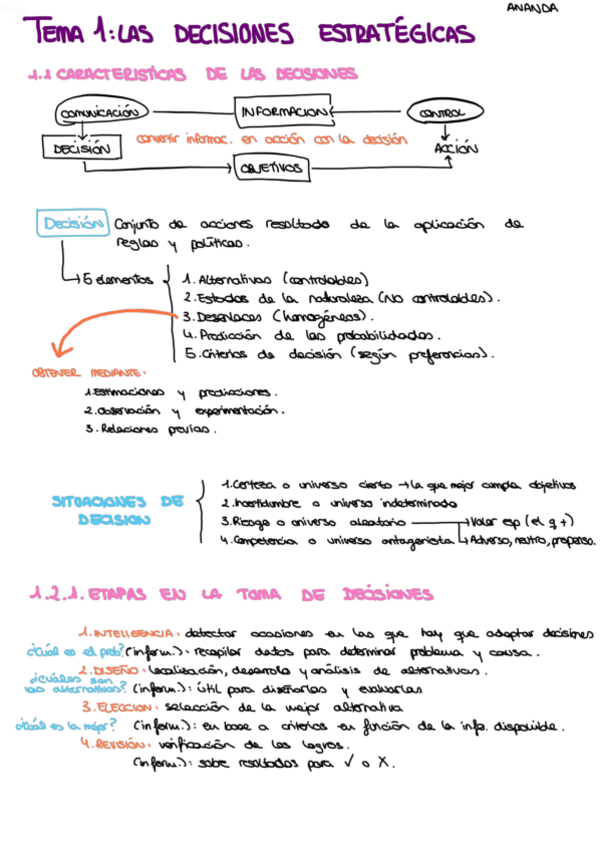 ANANDA
TEMA 1: LAS DECISIONES ESTRATÉGICAS
1.1 CARACTERISTÍCAS DE LAS DECISIONES
COMUNICACIÓN INFORMACION CONTROL
convertir informac. en acción con la decisión
DECISIÓN ACCIÓN
OBJETIVOS
Decisión Conjunto de acciones resultado de la aplicación de
reglas y políticas.
5 elementos
1. Alternativas (controlables)
2. Estados de la naturaleza (NO controlables).
3. Desenlaces (homogéneos).
4. Predicción de las probabilidades.
5. Criterios de decisión (según preferencias).
OBTENER MEDIANTE:
1. Estimaciones y predicciones.
2. Observación y experimentación.
3. Relaciones previas.
SITUACIONES DE
DECISION
1. Certeza o universo cierto → la que mejor cumpla objetivos
2. Incertidumbre o universo indeterminado
3. Riesgo o universo aleatorio → Valor esp (el q +)
4. Competencia o universo antagonista → Adverso, neutro, propenso.
1.2.1. ETAPAS EN LA TOMA DE DECISIONES
1. INTELIGENCIA: detectar ocasiones en las que hay que adoptar decisiones
¿Cuál es el prob? (inform.): recopilar datos para determinar problema y causa.
2. DISEÑO: localización, desarrollo y análisis de alternativas.
¿Cuáles son
las alternativas? (inform.): útil para diseñarlas y evaluarlas
3. ELECCION: selección de la mejor alternativa
¿Cuál es la mejor? (inform.): en base a criterios en función de la info. disponible.
4. REVISIÓN: verificación de los logros.
(inform.): sobre resultados para ✓ o X.